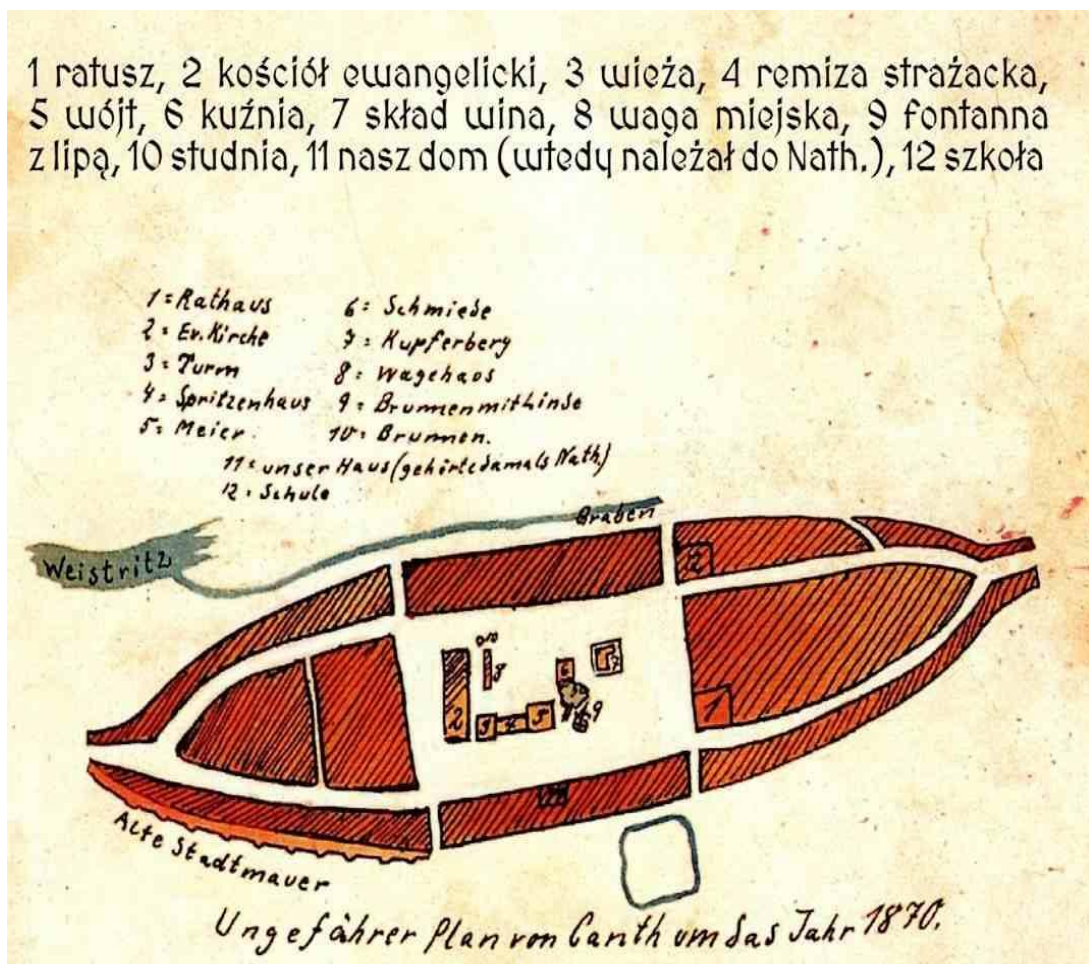 1 ratusz, 2 kościół ewangelicki, 3 wieża, 4 remiza strażacka,
5 wójt, 6 kuźnia, 7 skład wina, 8 waga miejska, 9 fontanna
z lipą, 10 studnia, 11 nasz dom (wtedy należał do Nath.), 12 szkoła
1 = Rathaus
2 = Ev. Kirche
3 = Turm
4 = Spritzenhaus
5 = Meier.
6 = Schmiede
7 = Kupferberg
8 = Wagehaos
9 = Brunnen mit Linde
10 = Brunnen.
11 = unser Haus (gehörte damals Nath.)
12 = Schule
Graben
Weistritz
12
8
6
7
2
3 4 5
9
1
11
Alte Stadtmauer
Ungefährer Plan von Canth um das Jahr 1870.